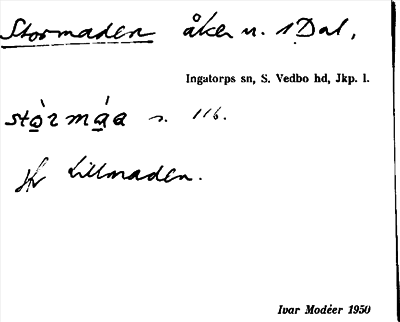 Stormaden åker n. 1 Dal,
Ingatorps sn, S. Vedbo hd, Jkp. l.
stò̱rmá̱a s. 116.
jfr Lillmaden.
Ivar Modéer 1950